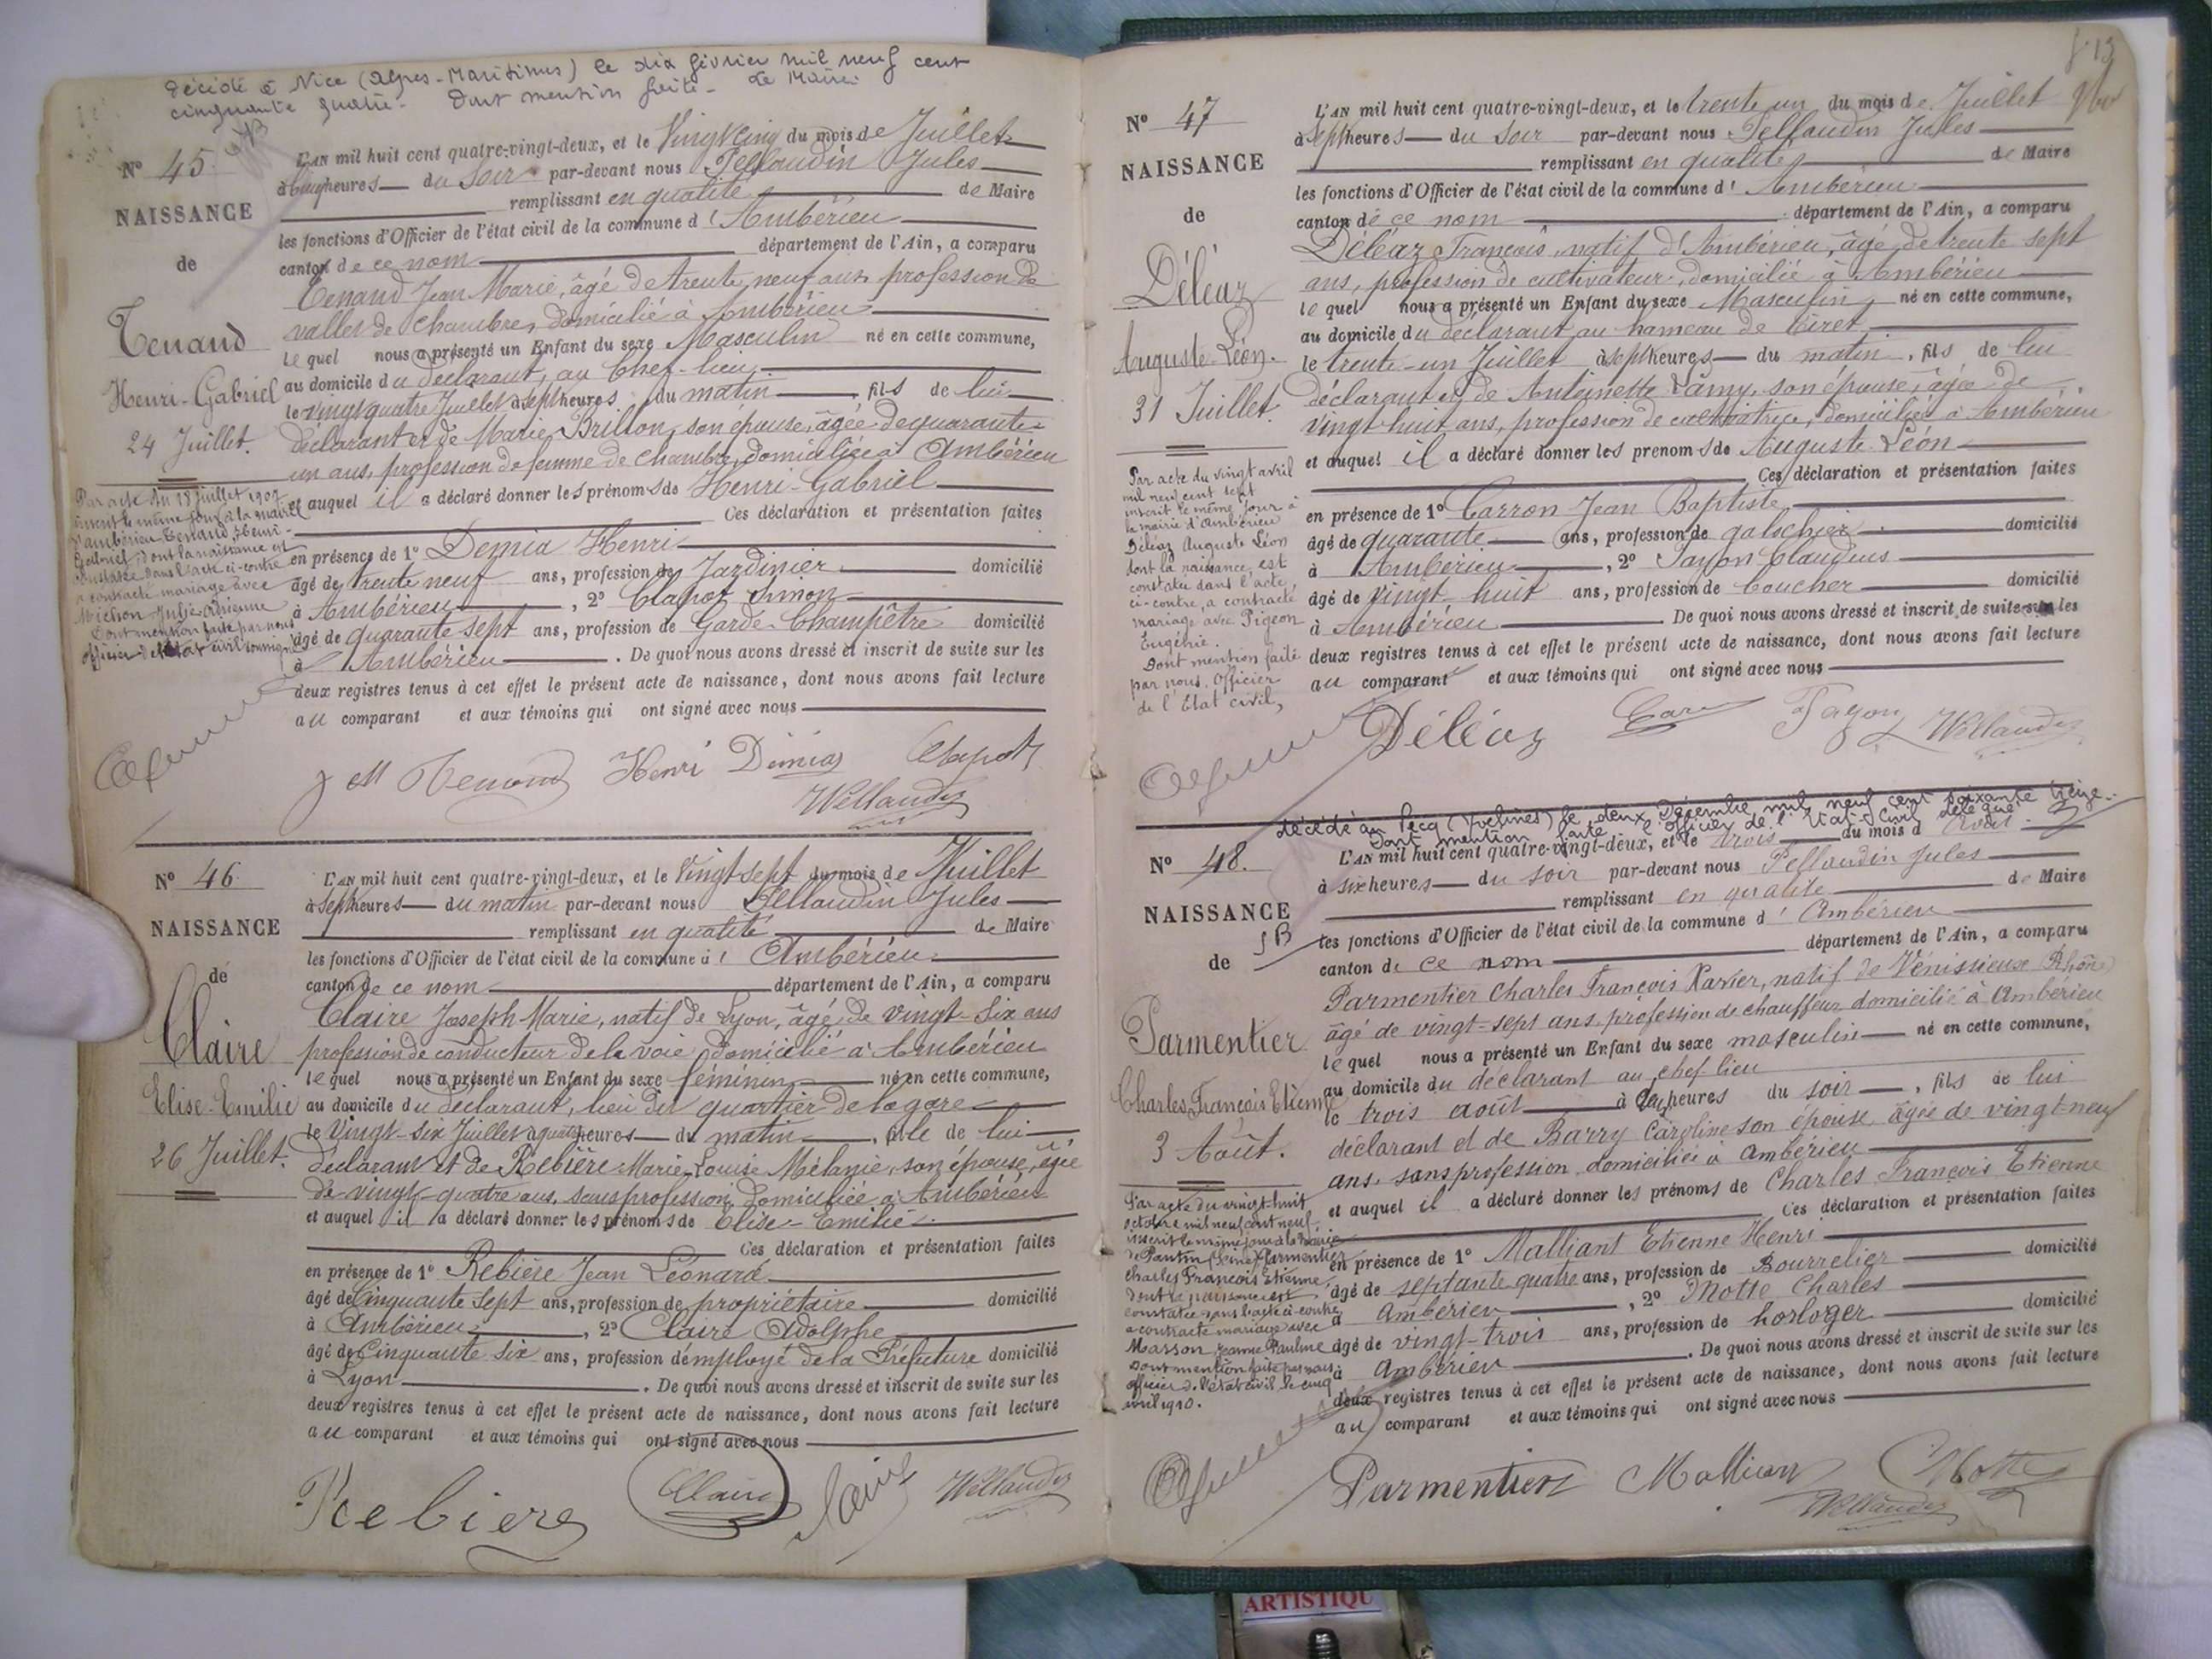 décédé à Nice (Alpes-Maritimes) le dix février mil neuf cent
cinquante quatre. Dont mention faite. Le Maire
Nº 45.
NAISSANCE
de
Tenand
Henri-Gabriel
24 Juillet.
Par acte du 18 juillet 1907
inscrit le même jour à la mairie
d'Ambérieu Tenand Henri-
Gabriel, dont la naissance est
constatée dans l'acte ci-contre
a contracté mariage avec
Michon Julie
Dont mention faite par nous
officier de l'état civil soussigné
L'AN mil huit cent quatre-vingt-deux, et le Vingt cinq du mois de Juillet
à cinq heures du Soir par-devant nous Pellaudin Jules
remplissant en qualité de Maire
les fonctions d'Officier de l'état civil de la commune d'Ambérieu
canton de ce nom département de l'Ain, a comparu
Tenand Jean Marie, âgé de trente neuf ans profession de
vallet de chambre, domicilié à Ambérieu
le quel nous a présenté un Enfant du sexe Masculin né en cette commune,
au domicile du déclarant, au Chef-lieu
le vingt quatre Juillet à sept heures du matin fils de lui
déclarant et de Marie Brillon, son épouse, âgée de quarante-
un ans, profession de femme de chambre, domiciliée à Ambérieu
et auquel il a déclaré donner les prénoms de Henri-Gabriel
Ces déclaration et présentation faites
en présence de 1º Demia Henri
âgé de trente neuf ans, profession de Jardinier domicilié
à Ambérieu, 2º Clapot Simon
âgé de quarante sept ans, profession de Garde-Champêtre domicilié
à Ambérieu. De quoi nous avons dressé et inscrit de suite sur les
deux registres tenus à cet effet le présent acte de naissance, dont nous avons fait lecture
au comparant et aux témoins qui ont signé avec nous
J M Tenand Henri Démia Clapot
Pellaudin
Nº 46.
NAISSANCE
de
Claire
Elise-Emilie
26 Juillet.
L'AN mil huit cent quatre-vingt-deux, et le Vingt-sept du mois de Juillet
à sept heures du matin par-devant nous Pellaudin Jules
remplissant en qualité de Maire
les fonctions d'Officier de l'état civil de la commune d'Ambérieu
canton de ce nom département de l'Ain, a comparu
Claire Joseph Marie, natif de Lyon, âgé de vingt-six ans
profession de conducteur de la voie, domicilié à Ambérieu
le quel nous a présenté un Enfant du sexe féminin né en cette commune,
au domicile du déclarant, lieu du quartier de la gare
le Vingt-six Juillet à quatre heures du matin, fille de lui
déclarant et de Rebière Marie-Louise Mélanie, son épouse, âgée
de vingt-quatre ans, sans profession, domiciliée à Ambérieu
et auquel il a déclaré donner les prénoms de Elise-Emilie
Ces déclaration et présentation faites
en présence de 1º Rebière Jean Léonard
âgé de Cinquante Sept ans, profession de propriétaire domicilié
à Ambérieu, 2º Claire Adolphe
âgé de Cinquante six ans, profession d'employé de la Préfecture domicilié
à Lyon. De quoi nous avons dressé et inscrit de suite sur les
deux registres tenus à cet effet le présent acte de naissance, dont nous avons fait lecture
au comparant et aux témoins qui ont signé avec nous
Rebiere Claire Claire Pellaudin
Nº 47
NAISSANCE
de
Déléaz
Auguste-Léon.
31 Juillet.
Par acte du vingt avril
mil neuf cent sept
inscrit le même jour à
la mairie d'Ambérieu
Déléaz Auguste Léon
dont la naissance est
constatée dans l'acte
ci-contre, a contracté
mariage avec Pigeon
Eugénie.
Dont mention faite
par nous, Officier
de l'Etat civil,
L'AN mil huit cent quatre-vingt-deux, et le trente un du mois de Juillet
à sept heures du Soir par-devant nous Pellaudin Jules
remplissant en qualité de Maire
les fonctions d'Officier de l'état civil de la commune d'Ambérieu
canton de ce nom département de l'Ain, a comparu
Déléaz François, natif d'Ambérieu, âgé de trente sept
ans, profession de cultivateur, domicilié à Ambérieu
le quel nous a présenté un Enfant du sexe Masculin, né en cette commune,
au domicile du déclarant au hameau de Tiret
le trente-un Juillet à sept heures du matin, fils de lui
déclarant et de Antoinette Lamy, son épouse, âgée de
vingt-huit ans, profession de cultivatrice, domiciliée à Ambérieu
et auquel il a déclaré donner les prénoms de Auguste Léon
Ces déclaration et présentation faites
en présence de 1º Carron Jean Baptiste
âgé de quarante ans, profession de galochier domicilié
à Ambérieu, 2º Payon Claudius
âgé de vingt huit ans, profession de boucher domicilié
à Ambérieu. De quoi nous avons dressé et inscrit de suite sur les
deux registres tenus à cet effet le présent acte de naissance, dont nous avons fait lecture
au comparant et aux témoins qui ont signé avec nous
Déléaz Payon Pellaudin
décédé au Pecq (Yvelines) le deux Décembre mil neuf cent soixante treize.
Dont mention faite. l'officier de l'Etat-Civil délégué
Nº 48.
NAISSANCE
de
Parmentier
Charles François Etienne
3 Août.
Par acte du vingt-huit
octobre mil neuf cent neuf
inscrit le même jour à la Mairie
de Pantin (Seine) Parmentier
Charles François Etienne
dont la naissance est
constatée dans l'acte ci-contre
a contracté mariage avec
Masson Jeanne Pauline
Dont mention faite par nous
officier de l'état civil le cinq
avril 1910.
L'AN mil huit cent quatre-vingt-deux, et le trois du mois d'Août
à six heures du soir par-devant nous Pellaudin Jules
remplissant en qualité de Maire
les fonctions d'Officier de l'état civil de la commune d'Ambérieu
canton de ce nom département de l'Ain, a comparu
Parmentier Charles François Xavier, natif de Vénissieux (Rhône)
âgé de vingt-sept ans profession de chauffeur domicilié à Ambérieu
le quel nous a présenté un Enfant du sexe masculin né en cette commune,
au domicile du déclarant au chef lieu
le trois août à heures du soir, fils de lui
déclarant et de Barry Caroline son épouse âgée de vingt-neuf
ans, sans profession domiciliée à Ambérieu
et auquel il a déclaré donner les prénoms de Charles François Etienne
Ces déclaration et présentation faites
en présence de 1º Malliant Etienne Henri
âgé de septante quatre ans, profession de Bourrelier domicilié
à Ambérieu, 2º Motte Charles
âgé de vingt-trois ans, profession de horloger domicilié
à Ambérieu. De quoi nous avons dressé et inscrit de suite sur les
deux registres tenus à cet effet le présent acte de naissance, dont nous avons fait lecture
au comparant et aux témoins qui ont signé avec nous
Parmentier Malliant CMotte
Pellaudin
ARTISTIQU